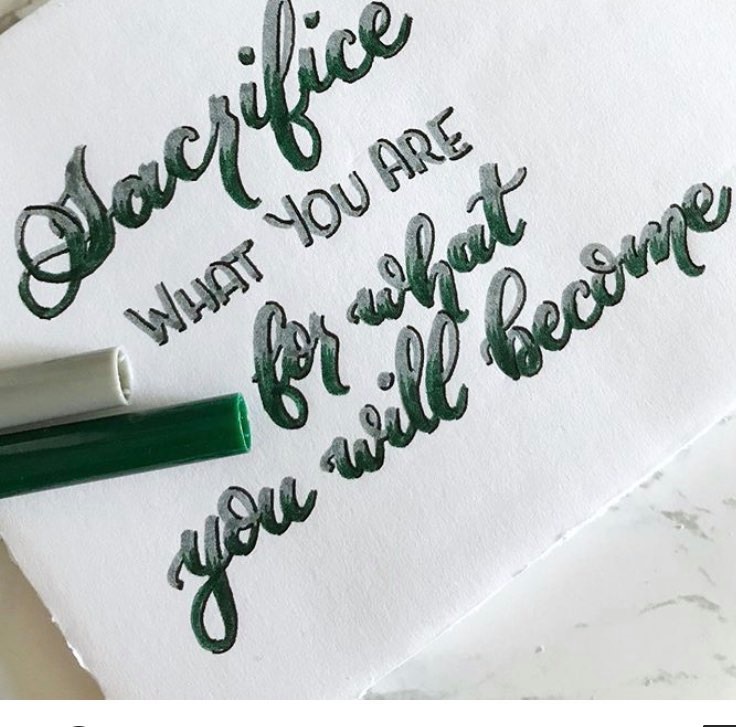 Sacrifice
WHAT YOU ARE
for what
you will become